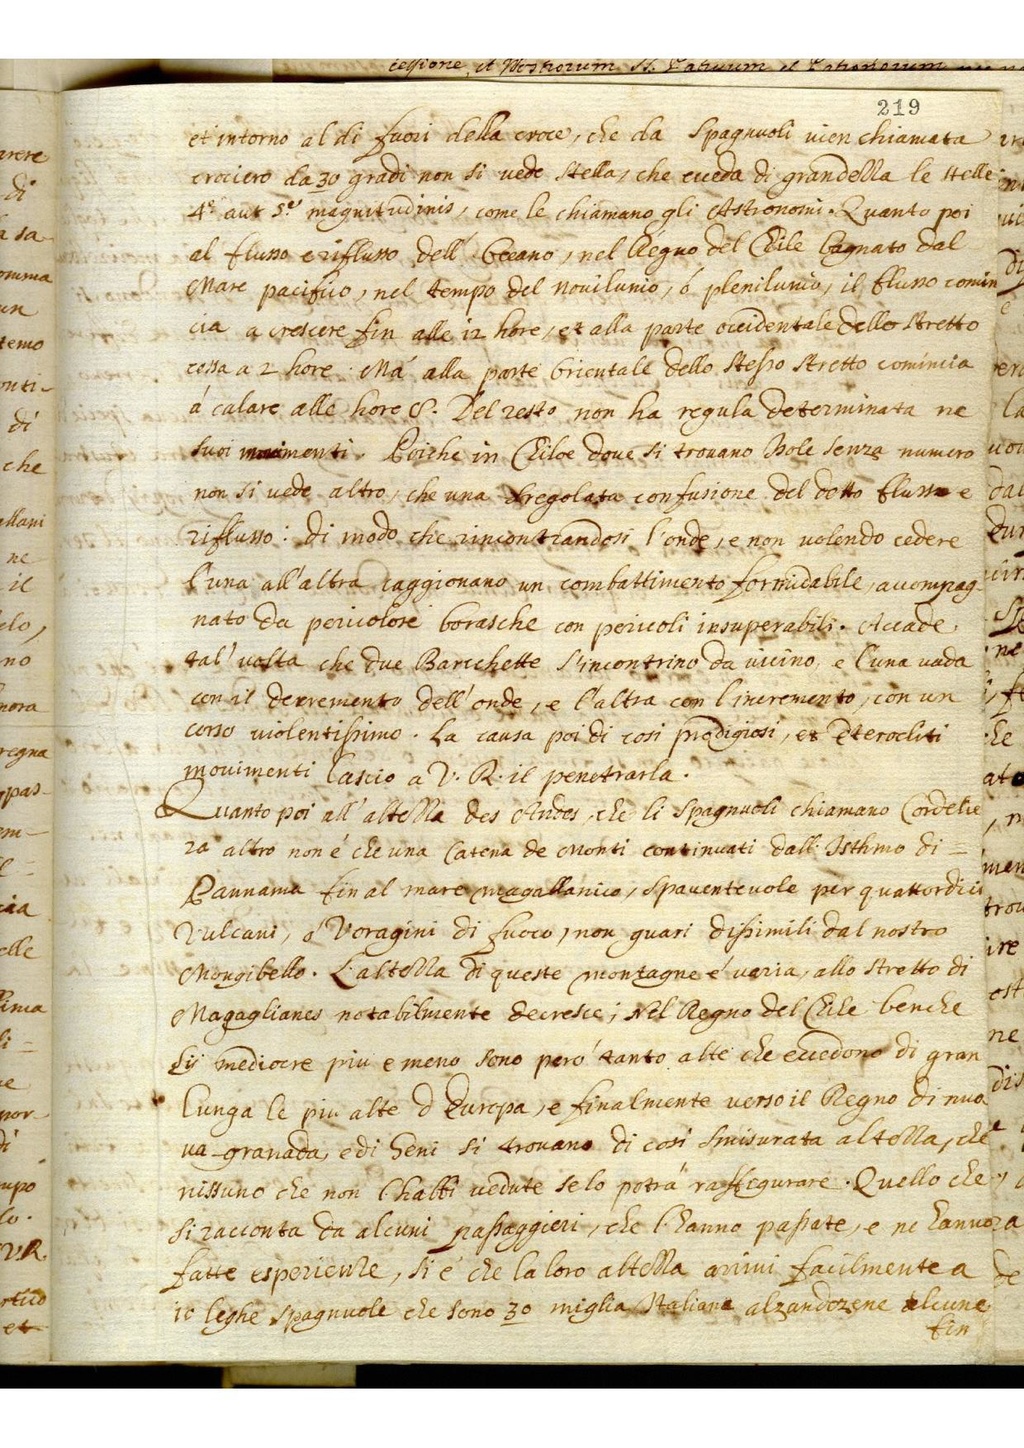 219
et intorno al di fuori della croce, che da Spagnuoli uien chiamata
crociero da 30 gradi non si uede stella, che exceda di grandezza le stelle
4.ę aut 5.ę magnitudinis, come le chiamano gli Astronomi. Quanto poi
al flusso e riflusso dell' Oceano, nel Regno del Chile bagnato dal
Mare pacifico, nel tempo del nouilunio, ó plenilunio, il flusso comin
cia a crescere fin alle 12 hore, et alla parte occidentale dello stretto
cessa a 2 hore. Má alla parte Orientale dello stesso stretto comincia
á calare alle hore 8. Del resto non ha regula determinata ne
suoi mouimenti. Poiche in Chiloe doue si trouano Isole senza numero
non si uede altro, che una sregolata confusione del detto flusso e
riflusso: di modo che rincontrandosi l'onde, e non uolendo cedere
l'una all'altra caggionano un combattimento formidabile, accompag-
nato da pericolose borasche con pericoli insuperabili. Accade
tal' uolta che due Barchette s'incontrino da uicino, e l'una uada
con il decremento dell'onde, e l'altra con l'incremento, con un
corso uiolentissimo. La causa poi di cosi prodigiosi, et Eterocliti
mouimenti lascio a V. R. il penetrarla.
Quanto poi all'altezza des Andes, che li Spagnuoli chiamano Cordelie
ra altro non é che una Catena de Monti continuati dall'Isthmo di =
Pannama fin al mare magallanico, spauenteuole per quattordici
Vulcani, ó Voragini di fuoco, non guari dissimili dal nostro
Mongibello. L'altezza di queste montagne é uaria, allo stretto di
Magaglianes notabilmente decresce; Nel Regno del Chile benche
sij mediocre piu e meno sono peró tanto alte che eccedono di gran
lunga le piu alte d Europa, e finalmente uerso il Regno di nuo
ua granada, e di si trouano di cosi smisurata altezza, che
nissuno che non l'habbi uedute se lo potrá raffigurare. Quello che
si racconta da alcuni passaggieri, che l'hanno passate, e ne hanno
fatte esperienze, si é che la loro altezza arriui facilmente a
10 leghe spagnuole che sono 30 miglia Italiane alzandozene alcune
fin